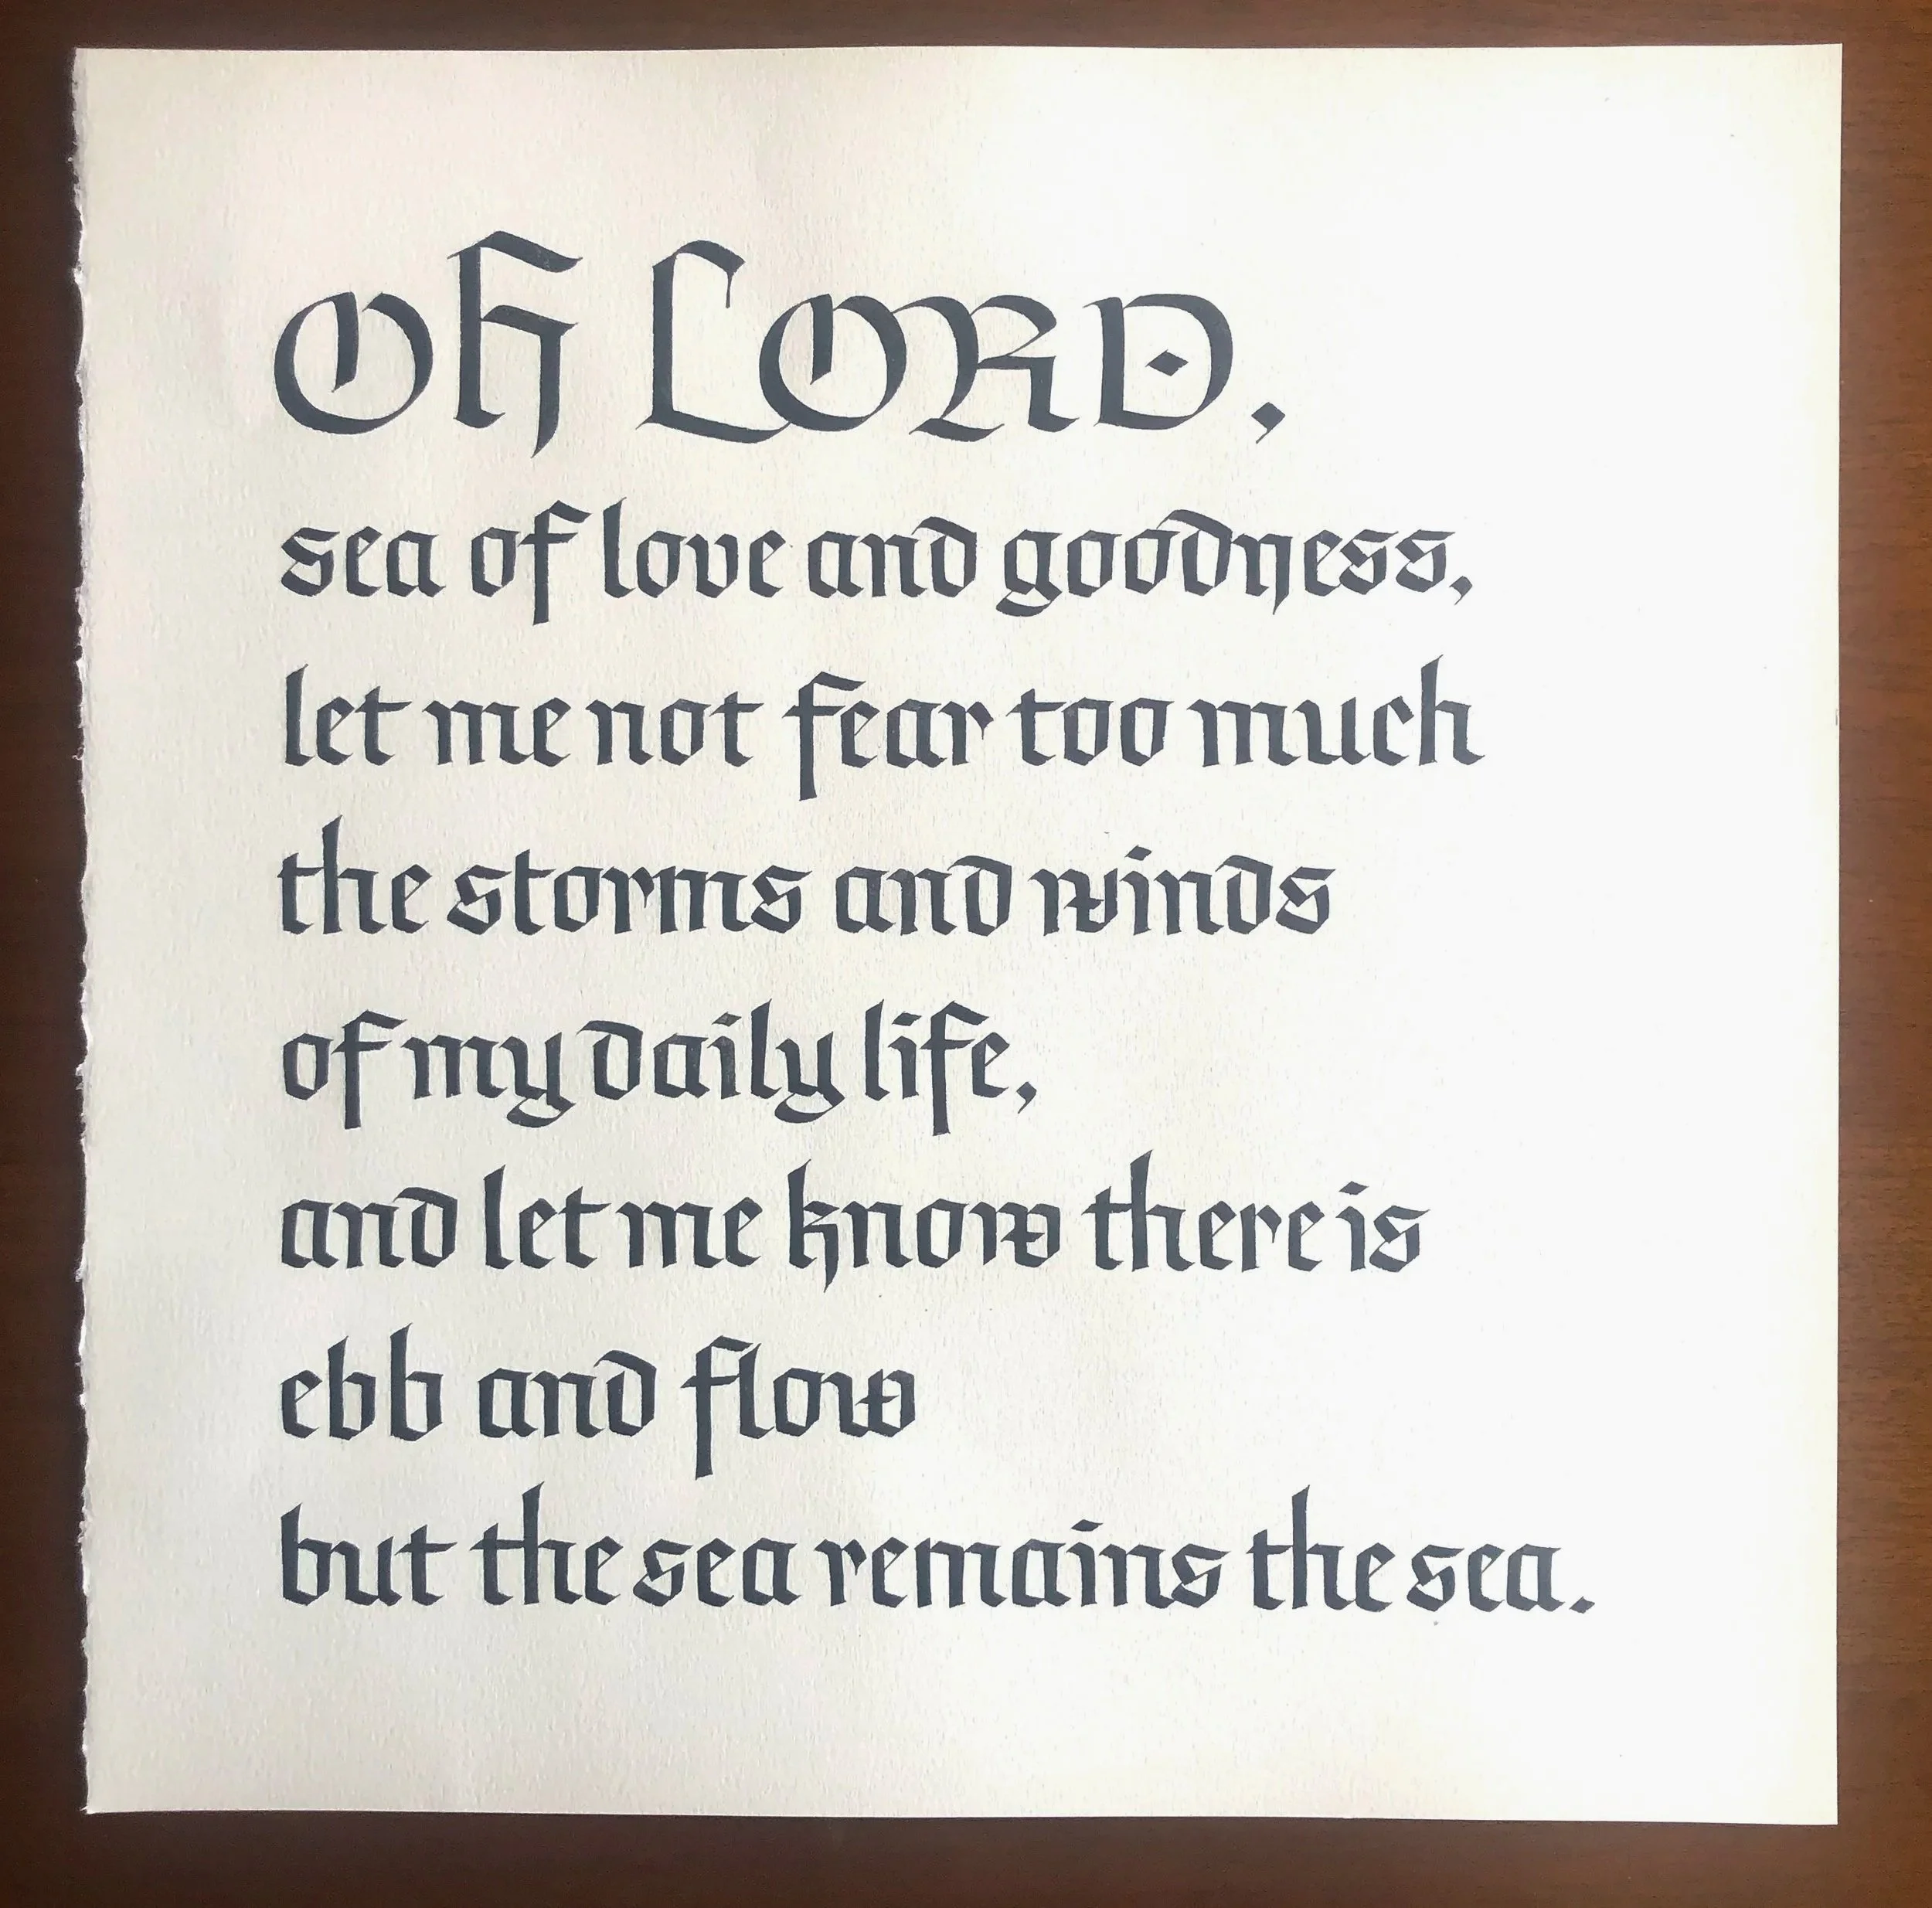 Oh LORD,
sea of love and goodness,
let me not fear too much
the storms and winds
of my daily life,
and let me know there is
ebb and flow
but the sea remains the sea.